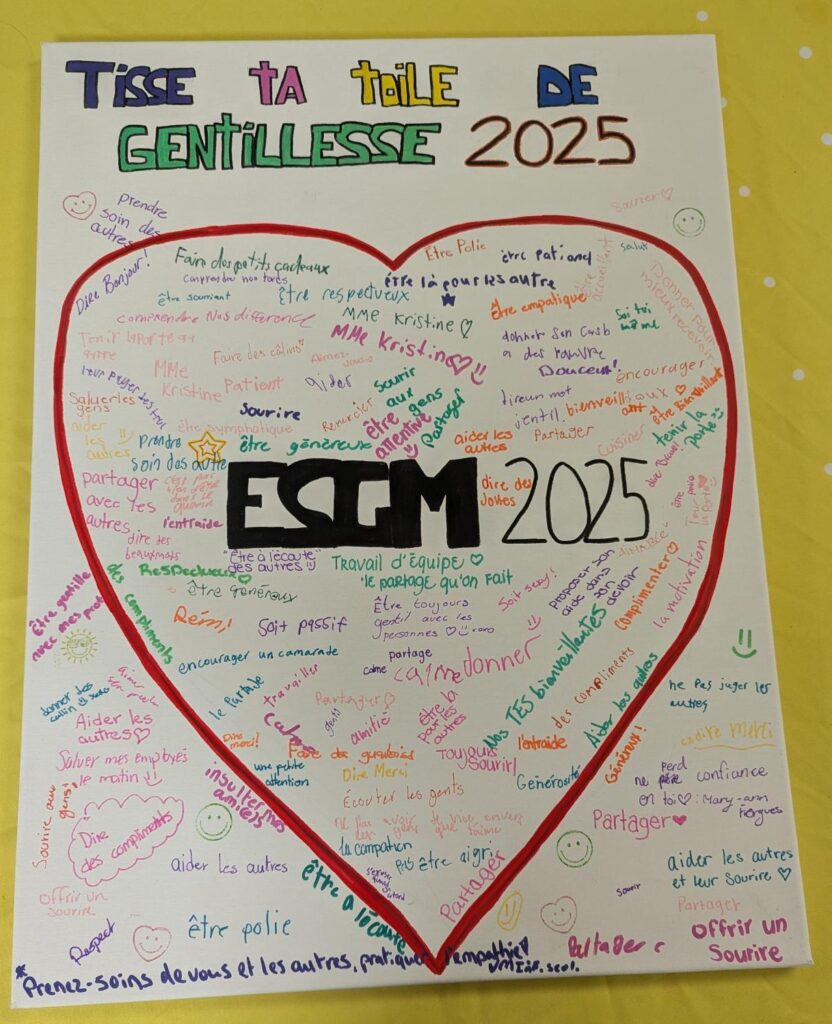 TISSE TA TOILE DE
GENTILLESSE 2025
prendre
soin des
autres
Sourier
Dire Bonjour!
Faire des petits cadeaux
Être Polie
être Patient
Salut
comprendre nos torts
être là pour les autre
être accueillant
Donner pour
mieux recevoir
être souriant
être respectueux
être empatique
Soi toi
même
comprendre Nos différence
MMe Kristine
MMe Kristine
donner son Casb
a des pauvre
Tenir la porte
Faire des câlins
Aimez-
vous
Douceur!
encourager
MMe
Kristine
Patient
aider
Sourir
aux
gens
Salue les
gens
Sourire
Remercier
Partager
dire un mot
gentil
bienveill
ant
être Bienveillant
aider
les
autres
être symphatique
être
attentive
aider les
autres
Partager
Cuisiner
tenir la
porte
Prendre
soin des autre
être généreux
partager
avec les
autres
l'entraide
ESGM 2025
dire des
Jokes
dire des
beaux mots
"Être à l'écoute"
des autres
Travail d'Équipe
le partage qu'on fait
AIMABLE
Respectueux
être généreux
Être gentille
avec mes prof
des compliments
Être toujours
gentil avec les
personnes xoxo
Soit sexy!
proposer son
aide dans
son
devoir
Complimenter
la motivation
Rémi
Soit passif
encourager un camarade
partage
calme
calme
donner
Nos TES bienveillantes
le Partage
travailler
Partager
des compliments
Aider les autres
ne Pas juger les
autres
donner des
calin xoxo
Aider les
autres
calme
gentil
amitié
être là
pour les
autres
Dire
merci!
l'entraide
Généreux!
dire Merci
Saluer mes employés
le matin
une petite
attention
Dire Merci
Toujours
Sourir!
Générosité
ne perd
père confiance
en toi : Mary-ann
Fergues
insulter nos
ami(e)s
Écouter les gents
Sourire aux
gens!
Dire
des compliments
Partager
la compation
pas être aigri
aider les autres
être à l'écoute
Partager
aider les autres
et leur Sourire
Offrir un
Sourire
sourir
Partager
Respect
être polie
Partager
Offrir un
Sourire
*Prenez-soins de vous et les autres, pratiquer l'empathie!